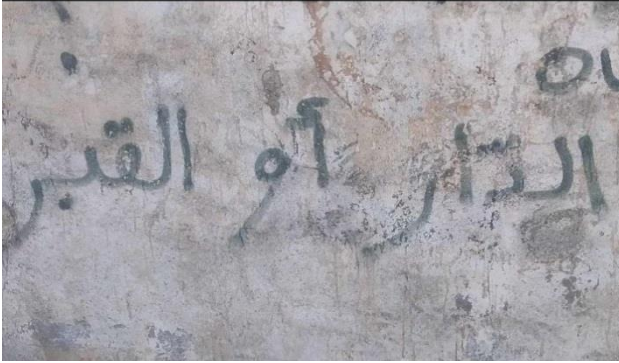 الدّار أو القبر